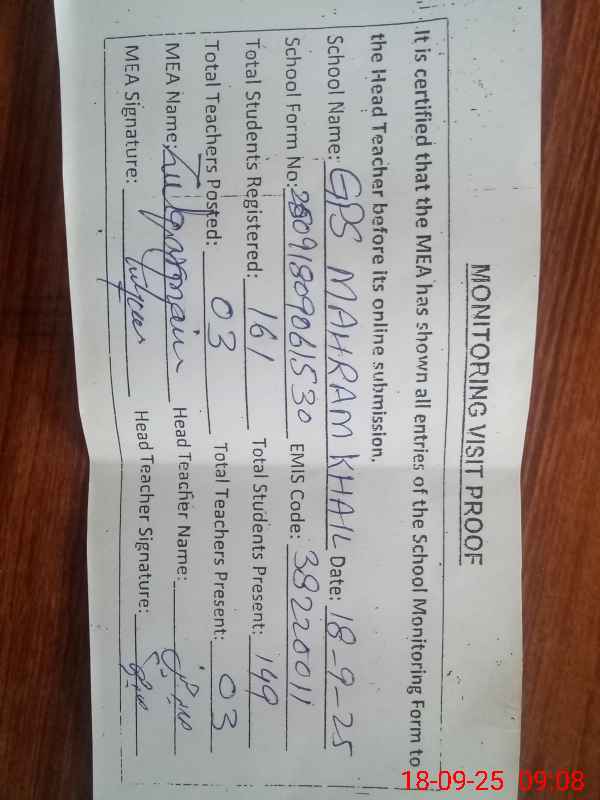 MONITORING VISIT PROOF
It is certified that the MEA has shown all entries of the School Monitoring Form to
the Head Teacher before its online submission.
School Name: GPS MAHRAM KHAIL Date: 18-9-25
School Form No: 25091809061530 EMIS Code: 38220011
Total Students Registered: 161 Total Students Present: 149
Total Teachers Posted: 03 Total Teachers Present: 03
MEA Name: Head Teacher Name:
MEA Signature: Head Teacher Signature:
18-09-25 09:08